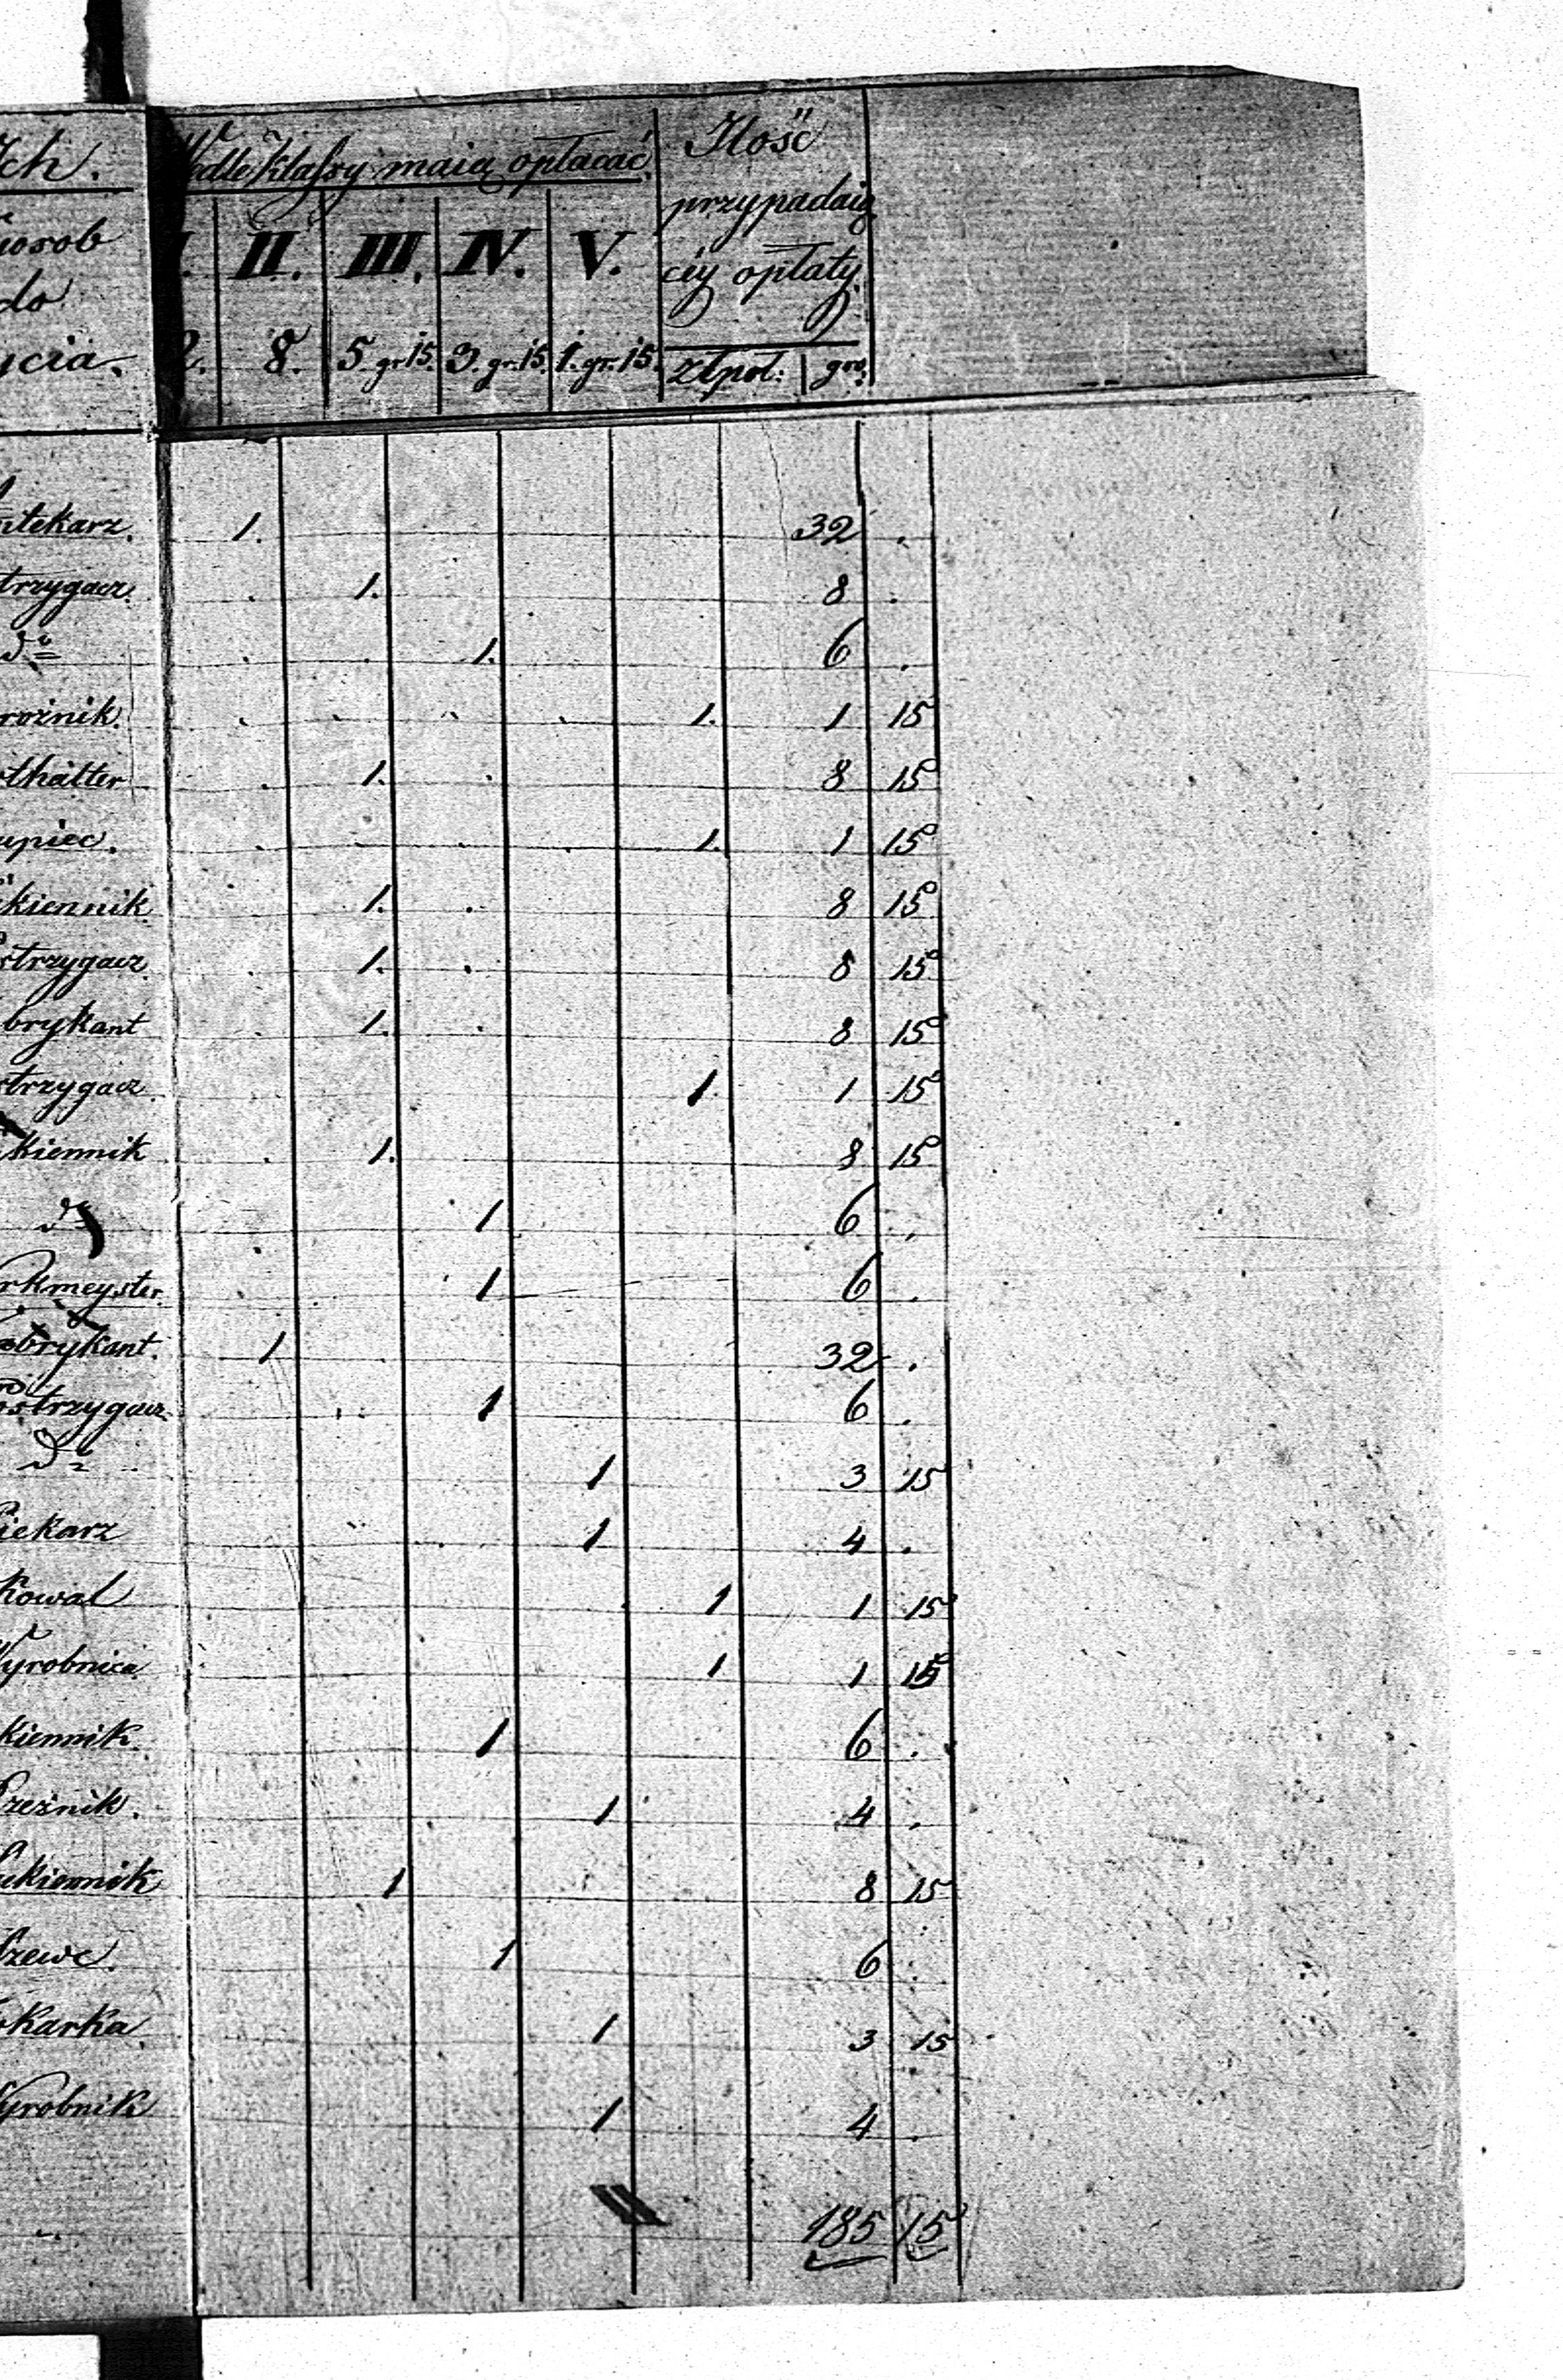 Wedle klassy maią opłacać.
Ilość
przypadaią
cey opłaty.
II. III. IV. V.
8. 5. gr 15. 3. gr. 15. 1. gr. 15. złpol: gro:
osob
do
ycia.
tekarz. 1. 32 .
trzygacz. 1. 8 .
do 1. 6 .
roźnik. 1. 1 15
thalter 1. 8 15
upiec. 1. 1 15
kiennik 1. 8 15
strzygacz 1. 8 15
brykant 1. 8 15
strzygacz. 1. 1 15
kiennik 1. 8 15
do 1 6 .
rkmeyster. 1 6 .
abrykant. 1 32 .
ostrzygacz 1 6 .
do 1 3 15
iekarz 1 4 .
Kowal 1 1 15
yrobnica 1 1 15
kiennik. 1 6 .
zeźnik. 1 4 .
ukiennik 1 8 15
zewc. 1 6
karka. 1 3 15
yrobnik 1 4 .
185 15